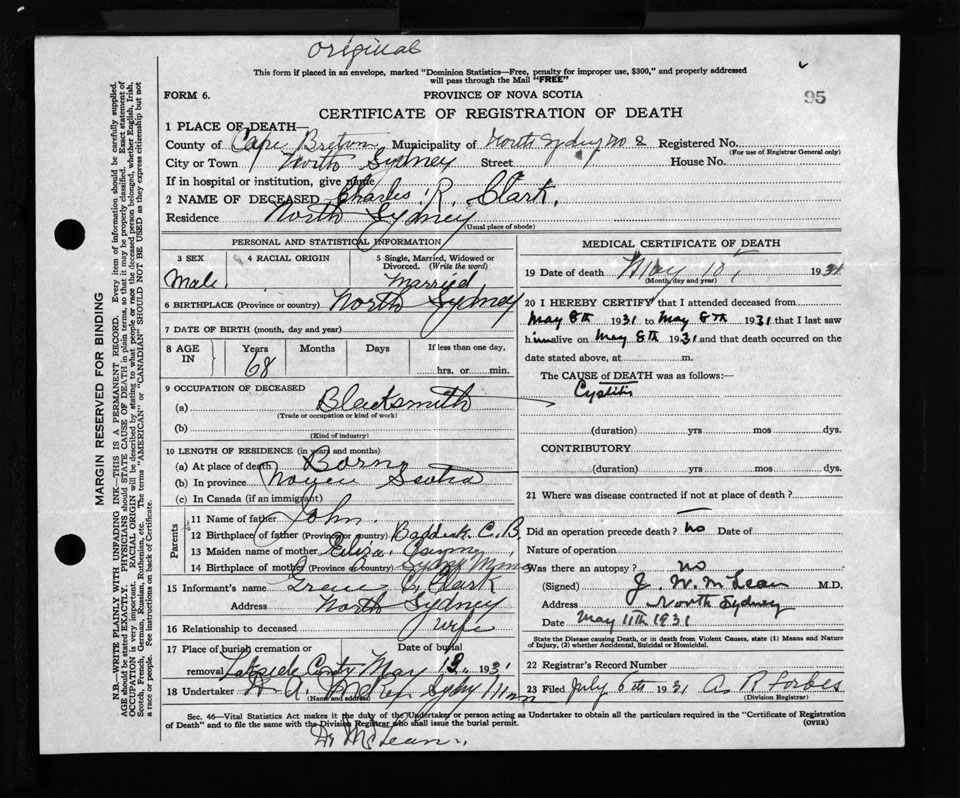 Original
This form if placed in an envelope, marked "Dominion Statistics—Free, penalty for improper use, $300," and properly addressed
will pass through the Mail "FREE"
FORM 6.
PROVINCE OF NOVA SCOTIA
95
CERTIFICATE OF REGISTRATION OF DEATH
1 PLACE OF DEATH—
County of Cape Breton Municipality of North Sydney Registered No.
(For use of Registrar General only)
City or Town North Sydney Street House No.
If in hospital or institution, give name
2 NAME OF DECEASED Charles R. Clark.
Residence North Sydney
(Usual place of abode)
PERSONAL AND STATISTICAL INFORMATION
3 SEX 4 RACIAL ORIGIN 5 Single, Married, Widowed or Divorced. (Write the word)
Male. Married
6 BIRTHPLACE (Province or country) North Sydney
7 DATE OF BIRTH (month, day and year)
8 AGE IN Years Months Days If less than one day,
68 hrs. or min.
9 OCCUPATION OF DECEASED
(a) Blacksmith
(Trade or occupation or kind of work)
(b)
(Kind of industry)
10 LENGTH OF RESIDENCE (in years and months)
(a) At place of death Born
(b) In province Scotia
(c) In Canada (if an immigrant)
Parents
11 Name of father John.
12 Birthplace of father (Province or country) Baddeck C.B.
13 Maiden name of mother Eliza
14 Birthplace of mother (Province or country) Sydney Mines
15 Informant's name G. Clark
Address North Sydney
16 Relationship to deceased wife
17 Place of burial cremation or removal Date of burial
Lakeside May 13. 1931
18 Undertaker Sydney Mines
(Name and address)
MEDICAL CERTIFICATE OF DEATH
19 Date of death May 10, 1931
(Month, day and year)
20 I HEREBY CERTIFY that I attended deceased from
May 8th 1931 to May 8th 1931 that I last saw
him alive on May 8th 1931 and that death occurred on the
date stated above, at m.
The CAUSE of DEATH was as follows:—
Cystitis
(duration) yrs mos dys.
CONTRIBUTORY.
(duration) yrs mos dys.
21 Where was disease contracted if not at place of death?
Did an operation precede death? no Date of
Nature of operation
Was there an autopsy? no
(Signed) J. W. McLean M.D.
Address North Sydney
Date May 11th 1931
State the Disease causing Death, or in death from Violent Causes, state (1) Means and Nature
of Injury, (2) whether Accidental, Suicidal or Homicidal.
22 Registrar's Record Number
23 Filed July 6th 1931 A R Forbes
(Division Registrar)
Sec. 46—Vital Statistics Act makes it the duty of the Undertaker or person acting as Undertaker to obtain all the particulars required in the "Certificate of Registration
of Death" and to file the same with the Division Registrar who shall issue the burial permit.
(OVER)
Dr McLean.
MARGIN RESERVED FOR BINDING
N.B.—WRITE PLAINLY WITH UNFADING INK—THIS IS A PERMANENT RECORD. Every item of information should be carefully supplied.
AGE should be stated EXACTLY. PHYSICIANS should STATE CAUSE OF DEATH in plain terms, so that it may be properly classified. Exact statement of
OCCUPATION is very important. RACIAL ORIGIN will be described by stating to what people or race the deceased person belonged, whether English, Irish,
Scotch, French, German, Russian, Ruthenian, etc. The terms "AMERICAN" or "CANADIAN" SHOULD NOT BE USED as they express citizenship but not
a race or people. See instructions on back of Certificate.